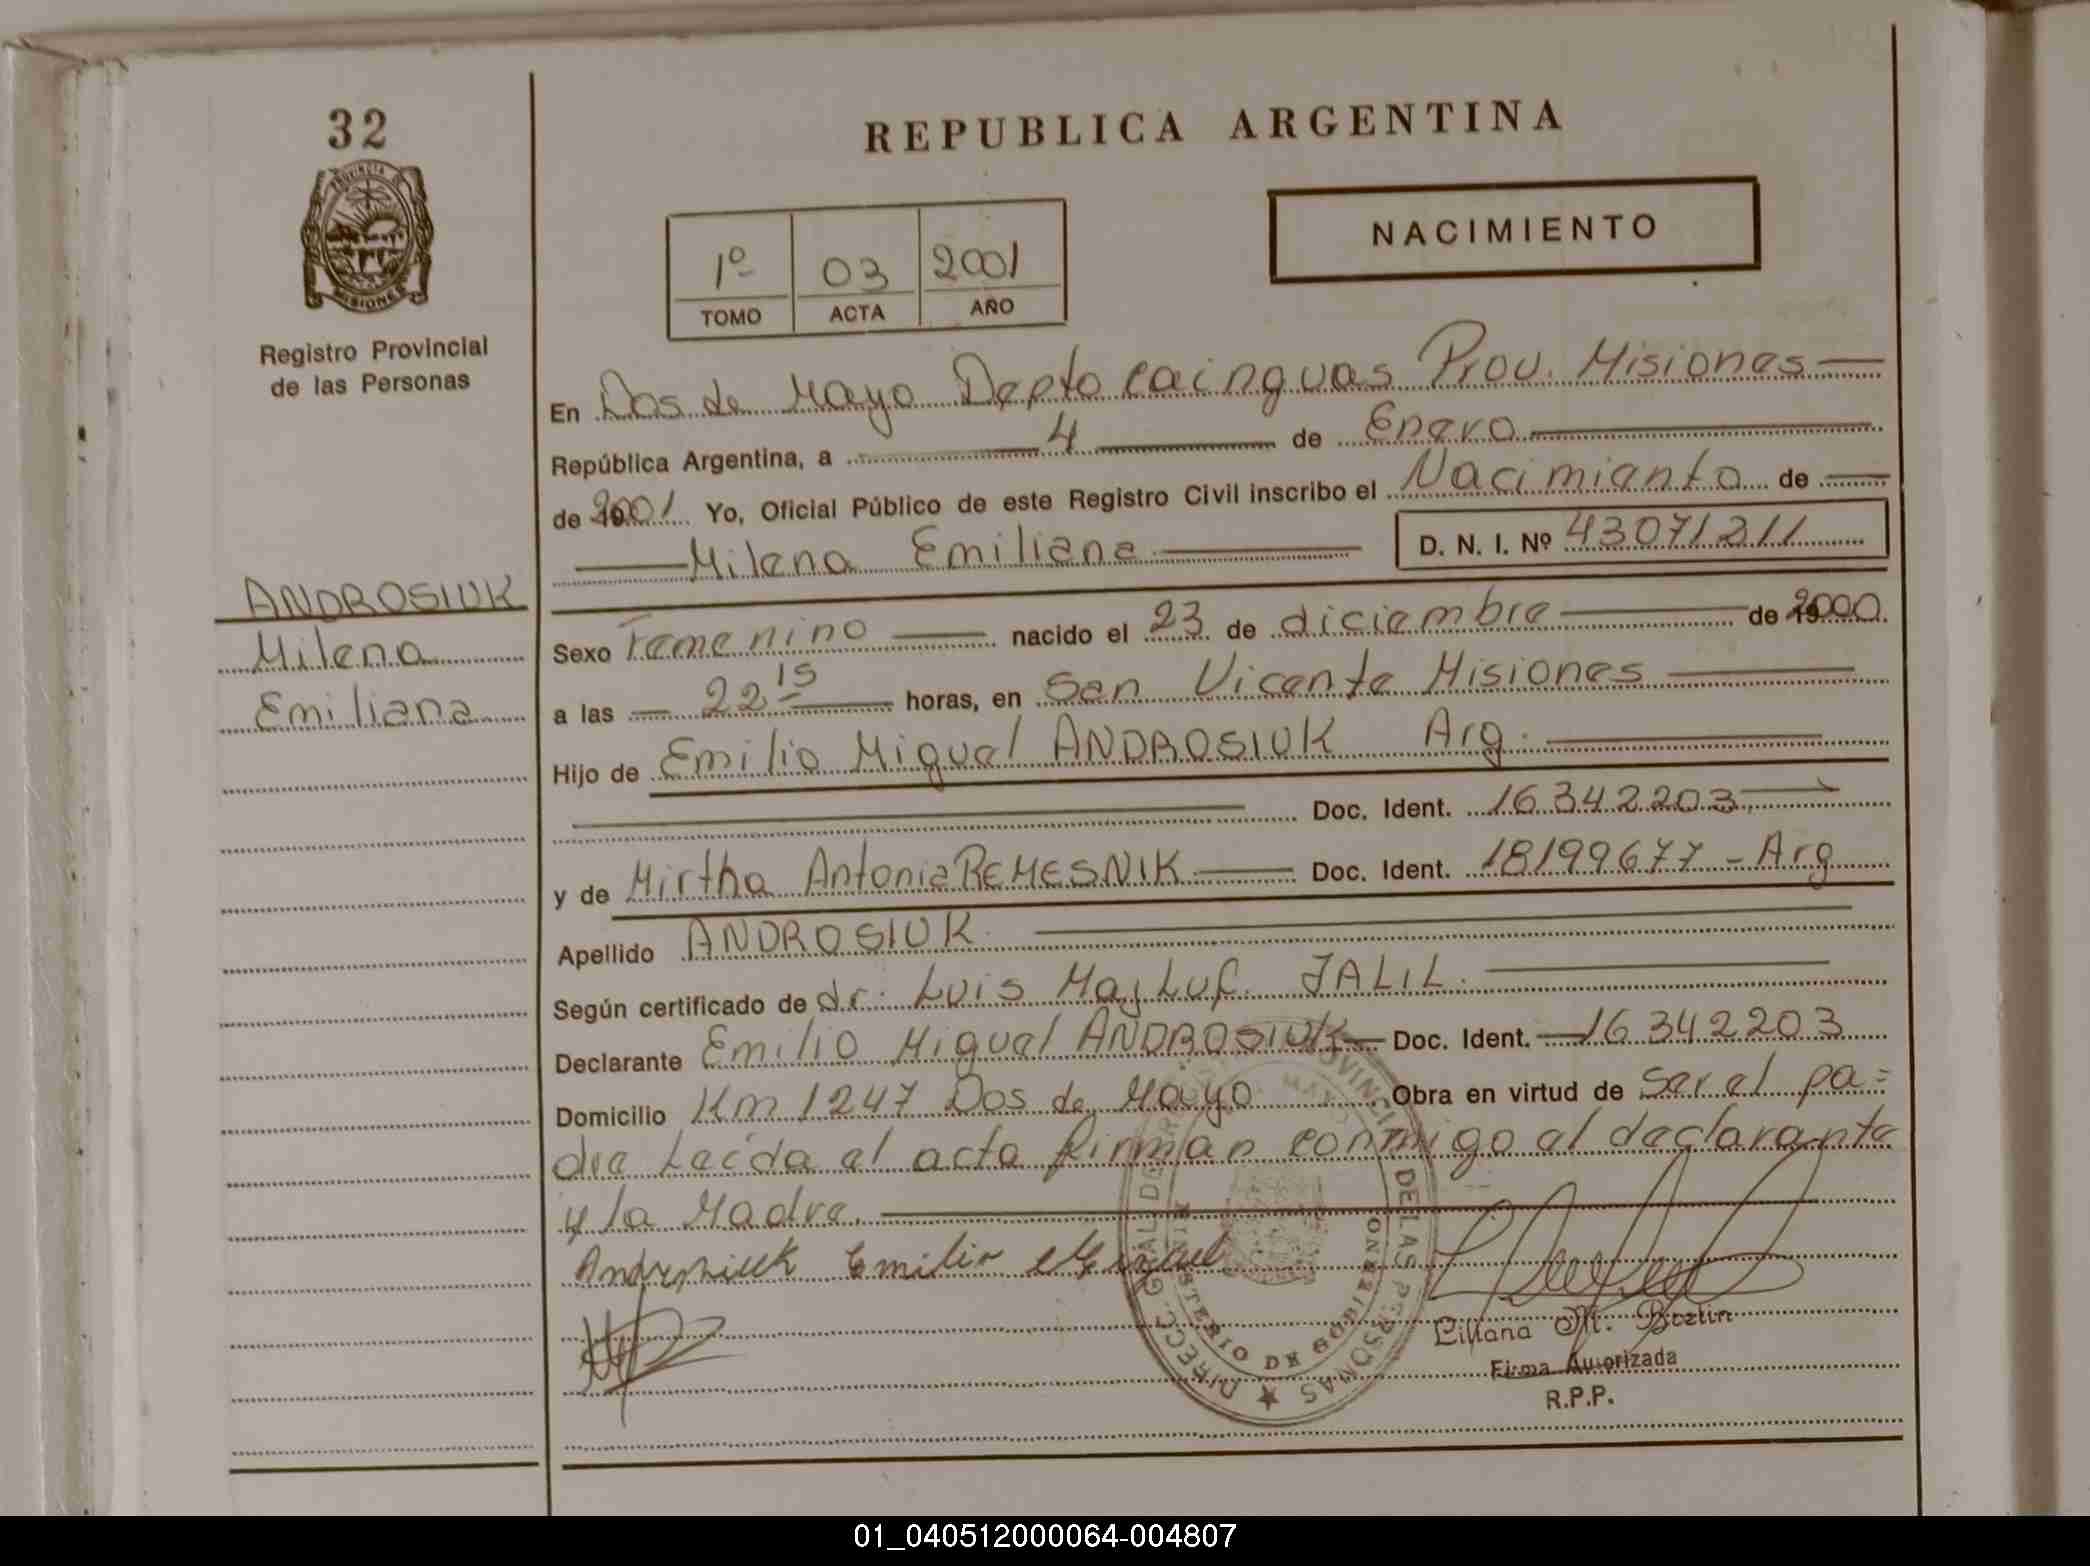 32
PROVINCIA DE
MISIONES
Registro Provincial
de las Personas
ANDROSIUK
Milena
Emiliana
REPUBLICA ARGENTINA
1º 03 2001
TOMO ACTA AÑO
NACIMIENTO
En Dos de Mayo Depto cainguas Prov. Misiones
República Argentina, a 4 de Enero
de 2001 Yo, Oficial Público de este Registro Civil inscribo el Nacimiento de
Milena Emiliana D. N. I. Nº 43071211
Sexo Femenino nacido el 23 de diciembre de 2000
a las 22 15 horas, en San Vicente Misiones
Hijo de Emilio Miguel ANDROSIUK Arg.
Doc. Ident. 16.342.203
y de Mirtha Antonia REMESNIK Doc. Ident. 18199677 - Arg
Apellido ANDROSIUK
Según certificado de dr. Luis Majluf. JALIL.
Declarante Emilio Miguel ANDROSIUK Doc. Ident. 16.342.203
Domicilio Km 1247 Dos de Mayo Obra en virtud de ser el pa=
dre Leída el acta firman conmigo el declarante
y la Madre.
Androsiuk Emilio Miguel
DIRECC. GRAL DE PROVINCIAL DE LAS PERSONAS
MINISTERIO DE GOBIERNO
MISIONES
Liliana M.
Firma Autorizada
R.P.P.
01_040512000064-004807